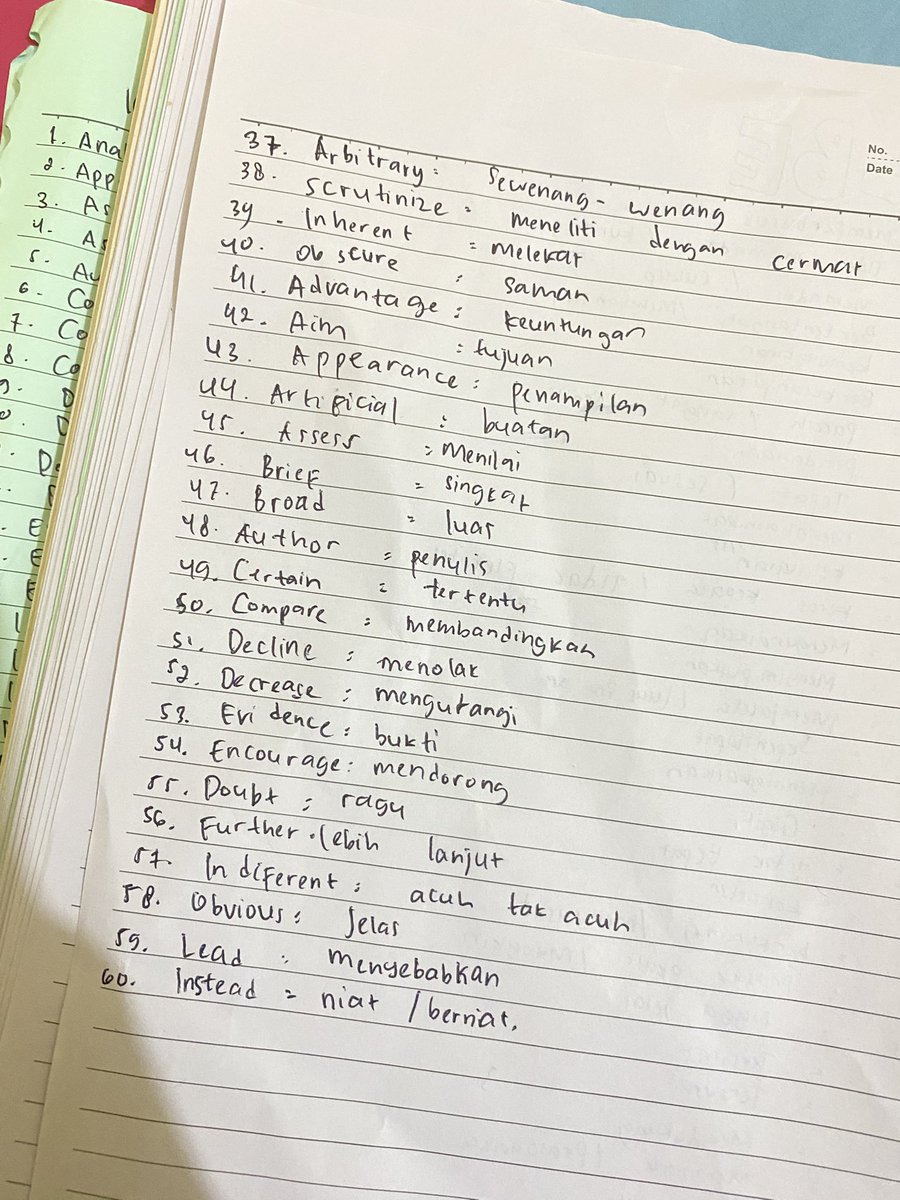 1. Ana
2. App
3. As
4. As
5. Au
6. Co
7. Co
8. Co
No.
Date
37. Arbitrary : Sewenang - wenang
38. Scrutinize = meneliti dengan cermat
39. Inherent = melekat
40. Obscure : saman
41. Advantage : keuntungan
42. Aim : tujuan
43. Appearance : penampilan
44. Artificial : buatan
45. Assess = Menilai
46. Brief = singkat
47. Broad = luas
48. Author = penulis
49. Certain = tertentu
50. Compare : membandingkan
51. Decline : menolak
52. Decrease : mengurangi
53. Evidence : bukti
54. Encourage : mendorong
55. Doubt : ragu
56. Further . lebih lanjut
57. Indiferent : acuh tak acuh
58. Obvious : Jelas
59. Lead : menyebabkan
60. Instead = niat / berniat.